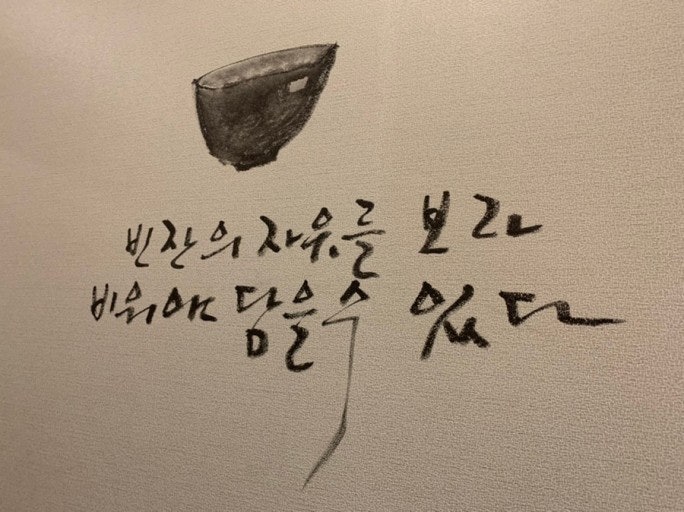 빈잔의 자유를 보라
비워야 담을수 있다